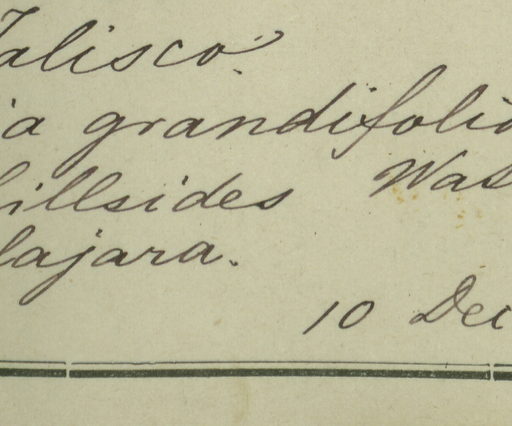 Jalisco.
ia grandifolia
hillsides Was
lajara.
10 Dec